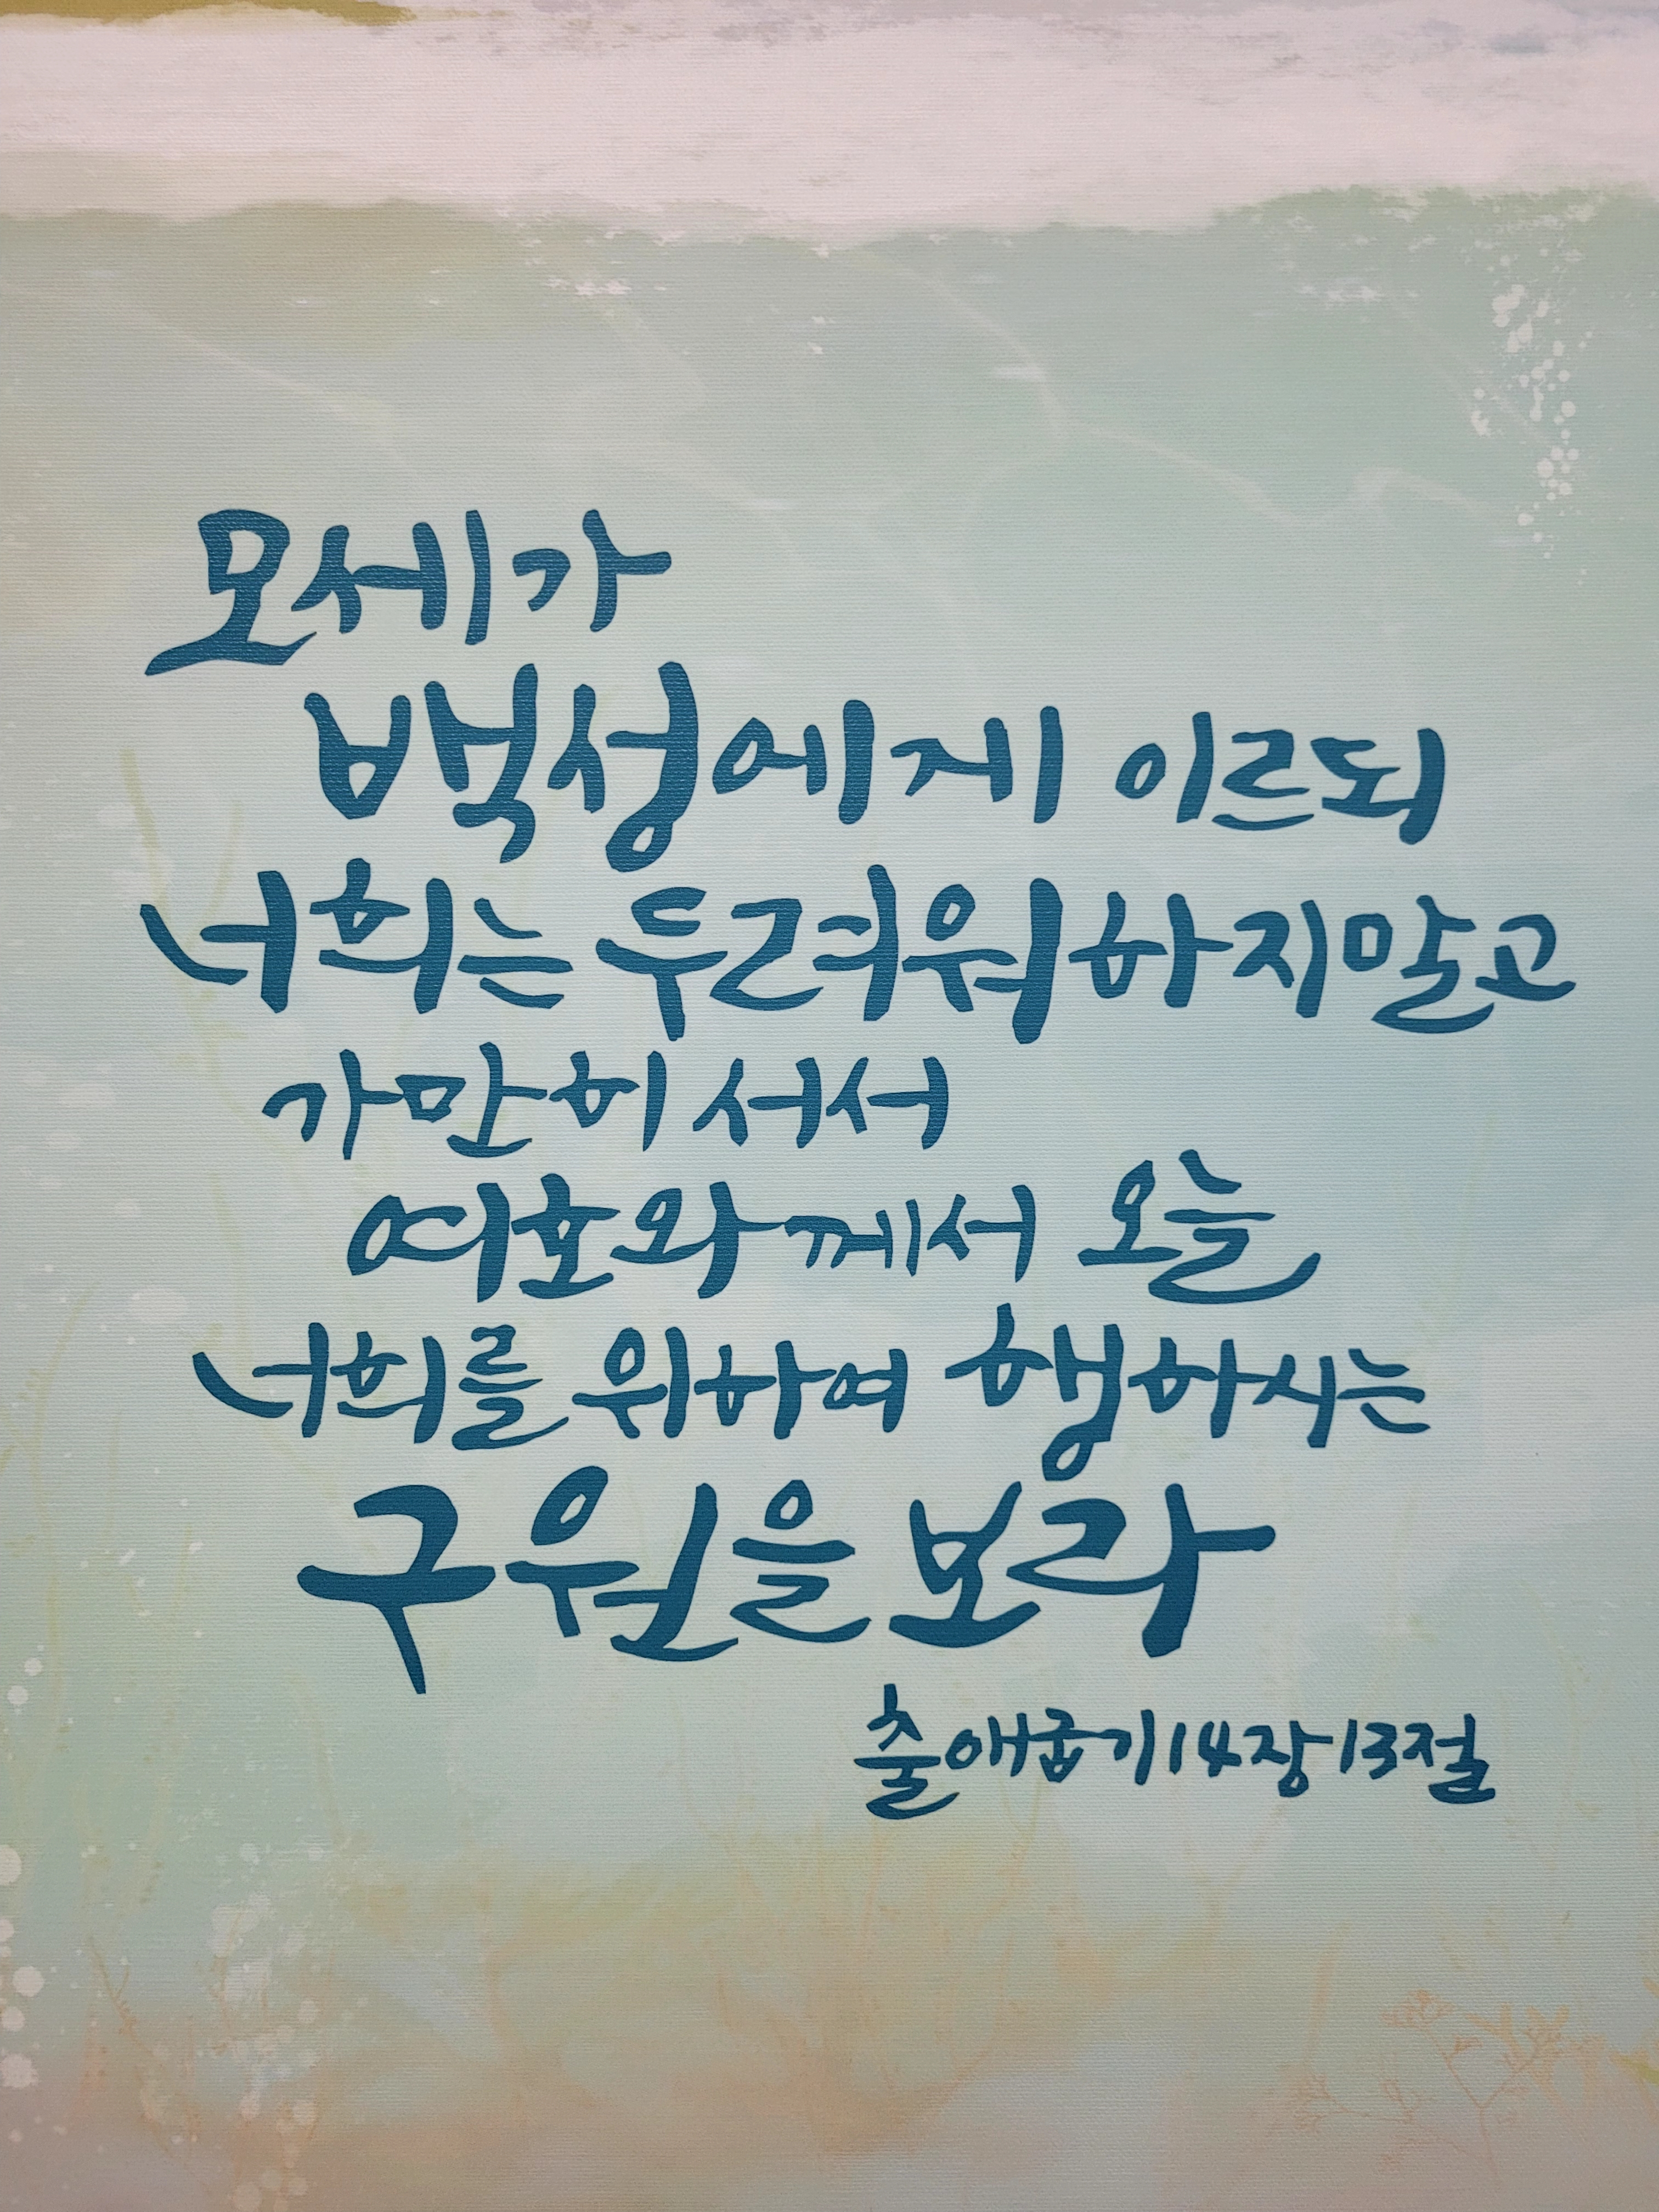 모세가
백성에게 이르되
너희는 두려워하지말고
가만히 서서
여호와께서 오늘
너희를 위하여 행하시는
구원을 보라
출애굽기14장13절